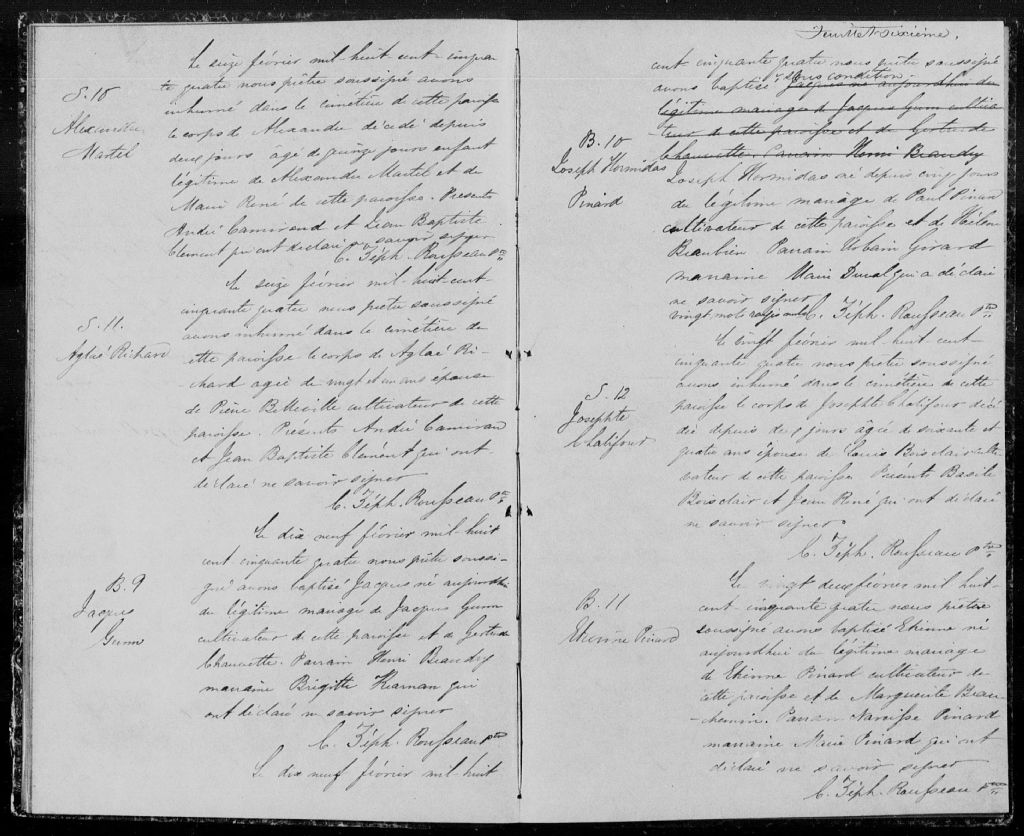 S. 10
Alexandre
Martel
Le seize février mil-huit cent-cinquan
te quatre nous prêtre soussigné avons
inhumé dans le cimetière de cette paroisse
le corps de Alexandre décédé depuis
deux jours âgé de quinze jours enfant
légitime de Alexandre Martel et de
Marie René de cette paroisse. Présents
André Camirand et Jean Baptiste
Clement qui ont déclaré ne savoir signer.
C. Zéph. Rousseau Ptre
S. 11.
Aglaé Richard
Le seize février mil-huit-cent-
cinquante quatre nous prêtre soussigné
avons inhumé dans le cimetière de
cette paroisse le corps de Aglaé Ri-
-chard agée de vingt et un ans épouse
de Pierre Belleville cultivateur de cette
paroisse. Présents André Camiran
et Jean Baptiste Clément qui ont
déclaré ne savoir signer
C. Zéph. Rousseau Ptre
B. 9
Jacques
Gunn
Le dix neuf février mil-huit
cent cinquante quatre nous prêtre soussi-
gné avons baptisé Jacques né aujourdhui
du légitime mariage de Jacques Gunn
cultivateur de cette paroisse et de Gertrude
Chaurette. Parrain Henri Beaudry
marraine Brigitte Kiernan qui
ont déclaré ne savoir signer
C. Zéph. Rousseau Ptre
Le dix neuf février mil-huit
Feuillet sixième.
cent cinquante quatre nous prêtre soussigné
avons baptisé sous condition Jacques né aujourdhui du
légitime mariage de Jacques Gunn cultiva
teur de cette paroisse et de Gertrude
Chaurette. Parrain Henri Beaudry
B. 10
Joseph Hormidas
Pinard
Joseph Hormidas né depuis cinq jours
du légitime mariage de Paul Pinard
cultivateur de cette paroisse et de Hélène
Beaubien. Parrain Urbain Girard
marraine Marie Duval qui a déclaré
ne savoir signer
vingt mots rayés nuls C. Zéph. Rousseau Ptre
S. 12
Josephte
Chatifour
Le vingt février mil-huit cent-
cinquante quatre nous prêtre soussigné
avons inhumé dans le cimetière de cette
paroisse le corps de Josephte Chatifour décé
dée depuis de jours âgée de soixante et
quatre ans épouse de Louis Boisclair culti
vateur de cette paroisse Présents Basile
Boisclair et Jean René qui ont déclaré
ne savoir signer
C. Zéph. Rousseau Ptre
B. 11
Etienne Pinard
Le vingt deux février mil huit-
cent-cinquante quatre nous prêtre
soussigné avons baptisé Etienne né
aujourdhui du légitime mariage
de Etienne Pinard cultivateur de
cette paroisse et de Marguerite Beau-
-chemin. Parrain Narcisse Pinard
marraine Marie Pinard qui ont
déclaré ne savoir signer
C. Zéph. Rousseau Ptre